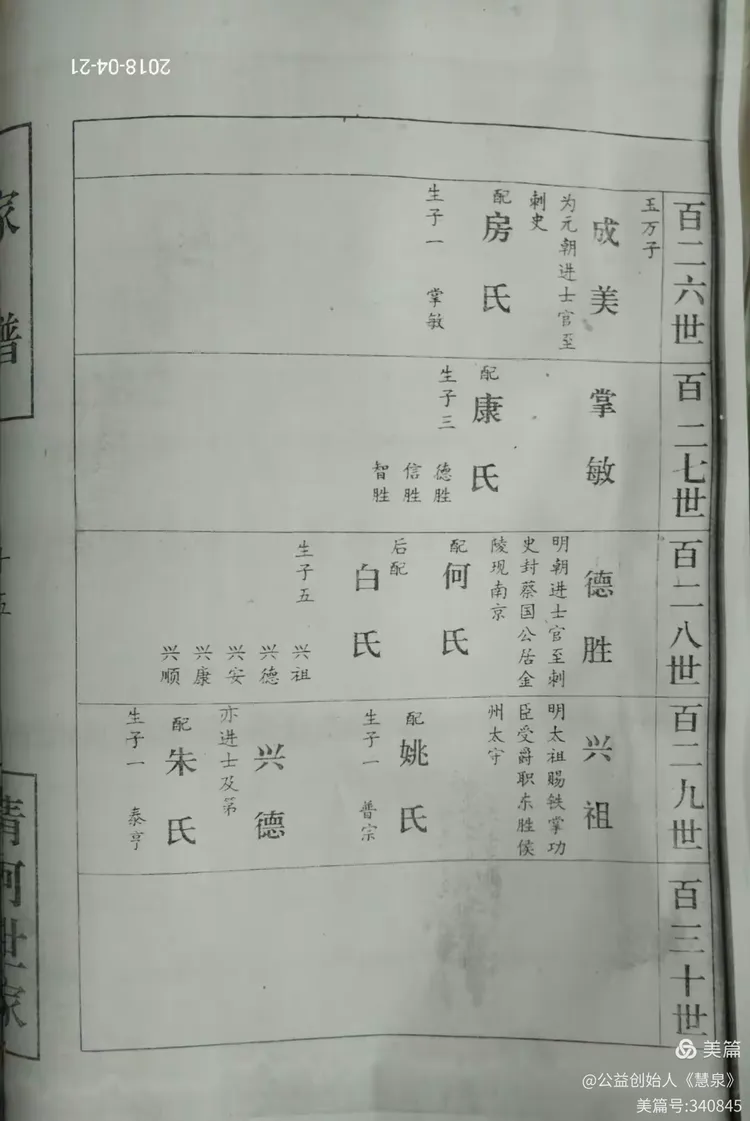 2018-04-21
百二六世
玉万子
成美
为元朝进士官至
刺史
配
房氏
生子一 掌敏
百二七世
掌敏
配
康氏
生子三
德胜
信胜
智胜
百二八世
德胜
明朝进士官至刺
史封蔡国公居金
陵现南京
配
何氏
后配
白氏
生子五
兴祖
兴德
兴安
兴康
兴顺
百二九世
兴祖
明太祖赐铁掌功
臣受爵职东胜侯
州太守
配
姚氏
生子一 普宗
兴德
亦进士及第
配
朱氏
生子一 泰亨
百三十世
家谱
十五
清河世家
美篇
@公益创始人《慧泉》
美篇号:340845